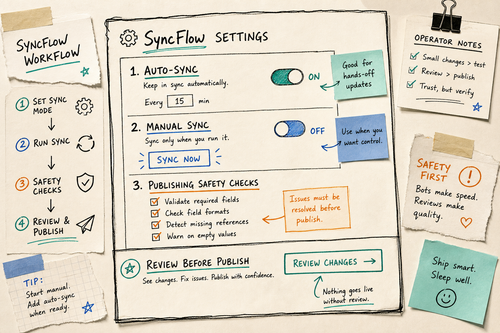 SYNCFLOW
WORKFLOW
1 SET SYNC
MODE
2 RUN SYNC
3 SAFETY
CHECKS
4 REVIEW &
PUBLISH
TIP:
Start manual.
Add auto-sync
when ready.
SYNCFLOW SETTINGS
1. AUTO-SYNC
Keep in sync automatically.
Every 15 min
ON
Good for
hands-off
updates
2. MANUAL SYNC
Sync only when you run it.
SYNC NOW
OFF
Use when you
want control.
3. PUBLISHING SAFETY CHECKS
Validate required fields
Check field formats
Detect missing references
Warn on empty values
Issues must be
resolved before
publish.
REVIEW BEFORE PUBLISH
See changes. Fix issues. Publish with confidence.
REVIEW CHANGES →
Nothing goes live
without review.
OPERATOR NOTES
Small changes > test
Review > publish
Trust, but verify
SAFETY
FIRST
!
Bots make speed.
Reviews make
quality.
Ship smart.
Sleep well.